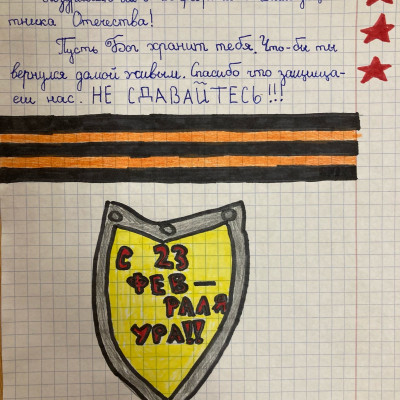 тника Отечества!
Пусть Бог хранит тебя. Что-бы ты
вернулся домой живым. Спасибо что защища-
еш нас. НЕ СДАВАЙТЕСЬ!!!
С 23
ФЕВ-
РАЛЯ
УРА!!